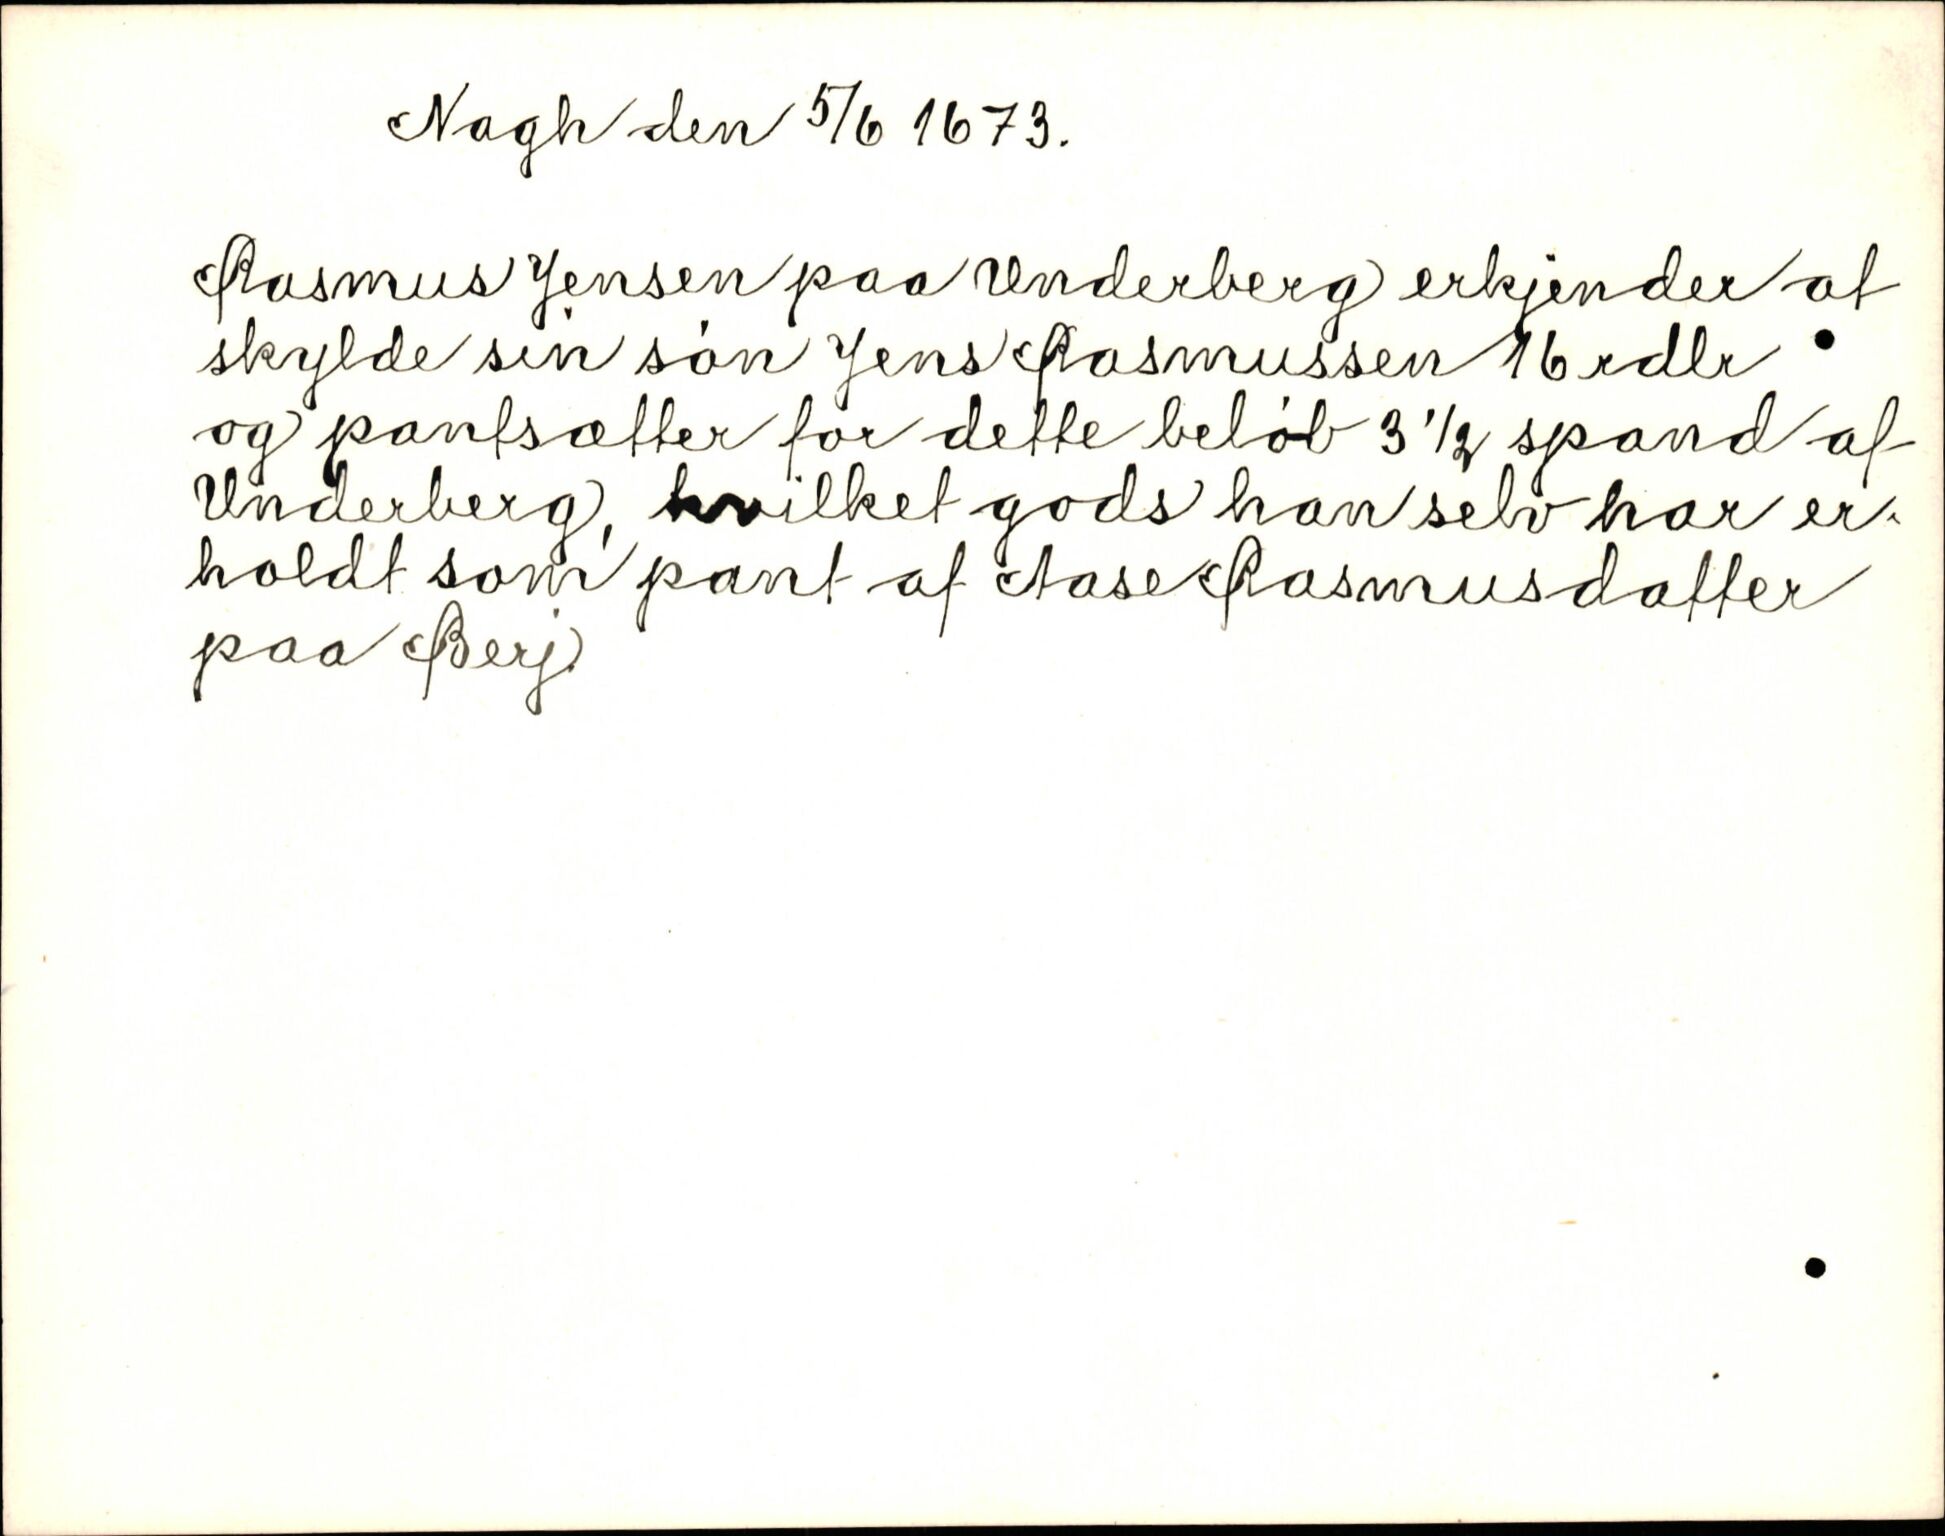 Nagh den 5/6 1673.
Rasmus Jensen paa Underberg erkjender at
skylde sin són Jens Rasmussen 16 rdlr
og pantsætter for dette belób 3 1/2 spand af
Underberg, hvilket gods han selv har er-
holdt som pant af Aase Rasmusdatter
paa Berj.